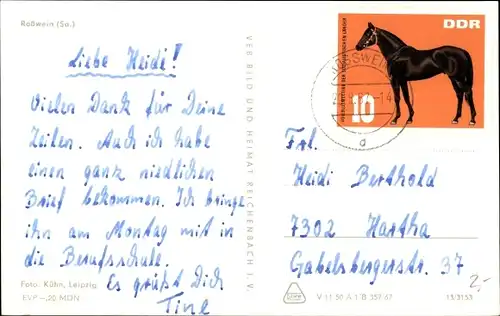 Roßwein (Sa.)
Liebe Heidi!
Vielen Dank für Deine
Zeilen. Auch ich habe
einen ganz niedlichen
Brief bekommen. Ich bringe
ihn am Montag mit in
die Berufsschule.
Es grüßt Dich
Tine
Foto: Kühn, Leipzig
EVP -,20 MDN
VEB BILD UND HEIMAT REICHENBACH I. V.
DDR
10
ROSSWEIN
Frl.
Heidi Berthold
7302 Hartha
Gabelsbergerstr. 37
2,-
V 11 50 A 1 B 357/67 15/3153